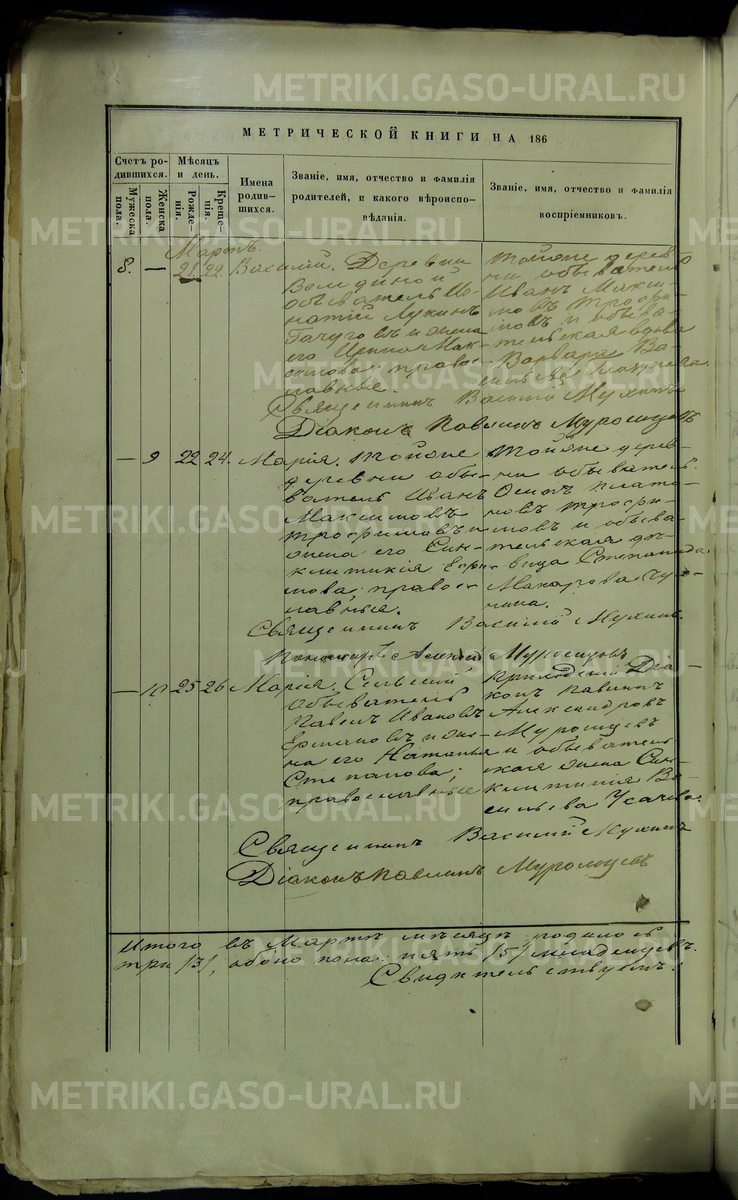 МЕТРИЧЕСКОЙ КНИГИ НА 186
Счетъ ро-
дившихся.
Мужеска
пола.
Женска
пола.
Мѣсяцъ
и день.
Рожде-
нія.
Креще-
нія.
Имена
родив-
шихся.
Званіе, имя, отчество и фамилія
родителей, и какого вѣроиспо-
вѣданія.
Званіе, имя, отчество и фамилія
воспріемниковъ.
Мартъ.
8. — 21. 22. Василій.
Деревни
обыватель
Лукинъ
и жена
его Мак-
симова; право-
славные.
Тойже дерев-
ни обыватель
Иванъ Макси-
мовъ Трофи-
мовъ и обыва-
тельская вдова
Варвара Ва-
сильева
Священникъ Василій Мухинъ
Діаконъ Павлинъ Муромцевъ
— 9 22 24. Марія.
Тойже
деревни обы-
ватель Иванъ
Максимовъ
Трофимовъ и
жена его Син-
клитикія
право-
славные.
Тойже дерев-
ни обыватель
Осипъ Плато-
новъ Трофи-
мовъ и обыва-
тельская дѣ-
вица Степанида
Макарова
Священникъ Василій Мухинъ.
Пономарь Алексей Муромцовъ
— 10 25 26 Марія.
Сельскій
обыватель
Павелъ Ивановъ
и же-
на его Наталья
Степанова;
православные
Діа-
конъ Павлинъ
Александровъ
Муромцевъ
и обыватель-
ская жена Син-
клитикія Ва-
сильева Усачева
Священникъ Василій Мухинъ
Діаконъ Павлинъ Муромцевъ
Итого въ Мартѣ мѣсяцѣ родилось
три /3/, обоего пола пять /5/ младенцевъ.
Свидѣтельствуемъ:
METRIKI.GASO-URAL.RU